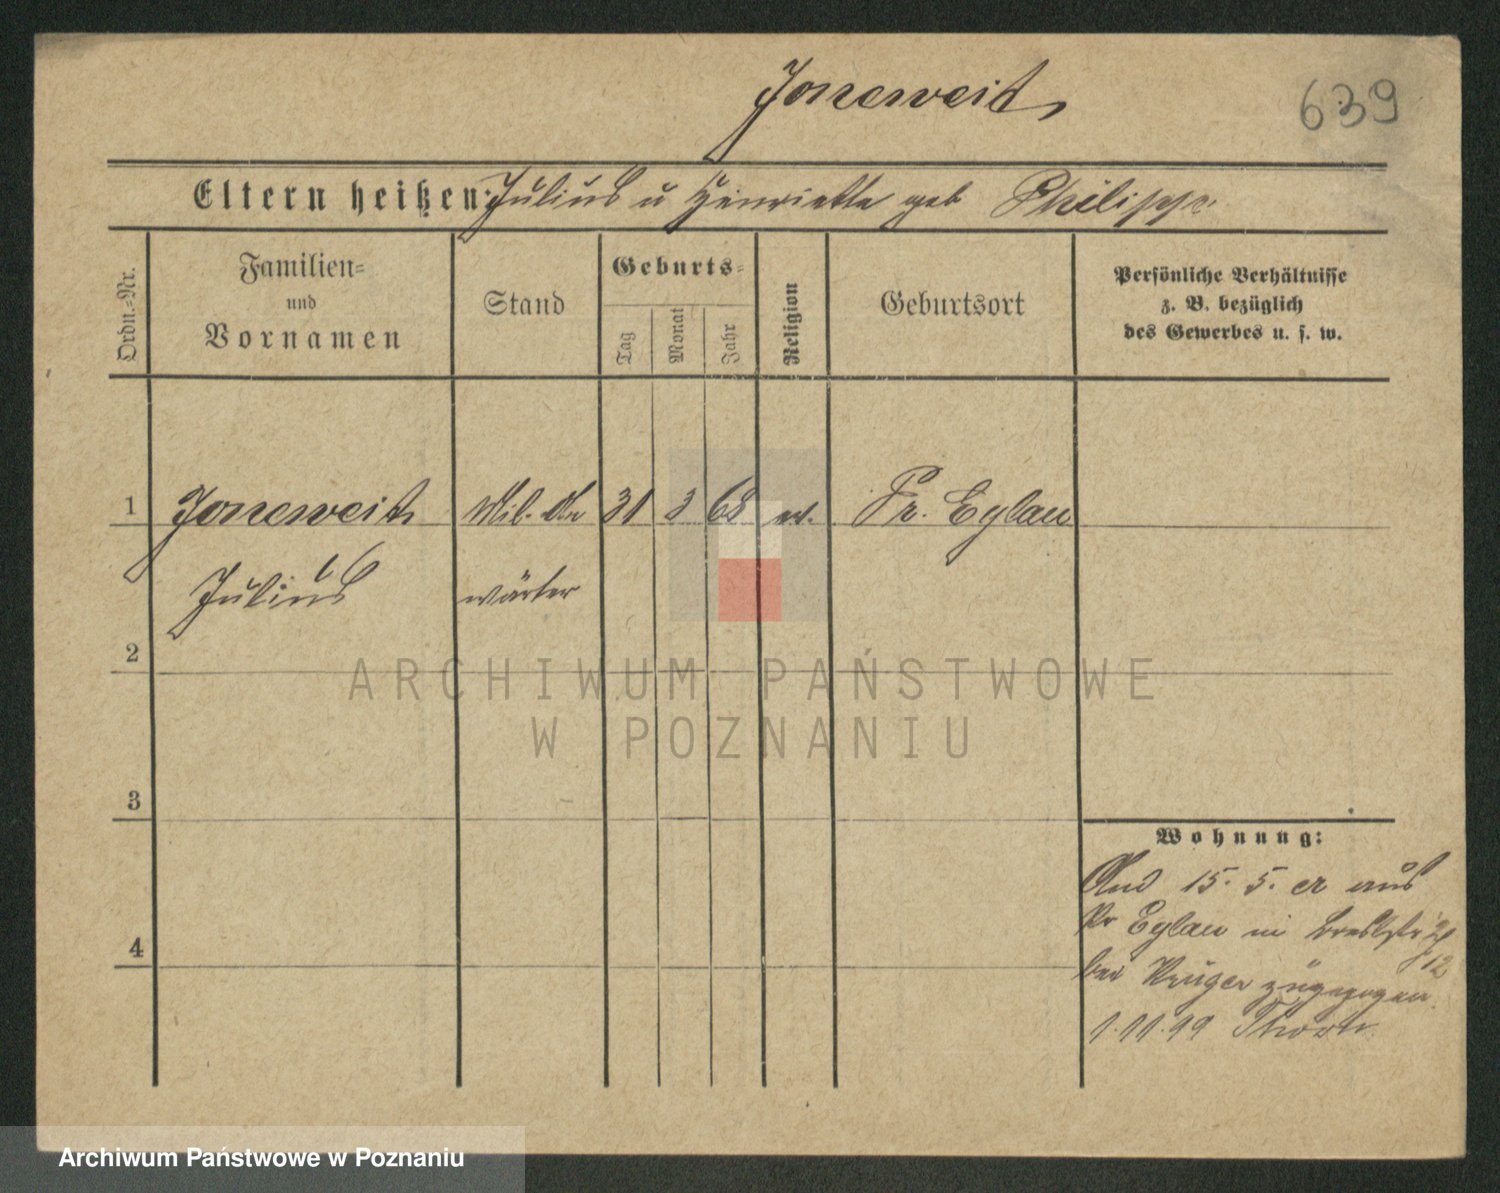 Joneweit
639
Eltern heißen: Julius u Henriette geb Philipp
Ordn.=Nr.
Familien=
und
Vornamen
Stand
Geburts=
Tag
Monat
Jahr
Religion
Geburtsort
Persönliche Verhältnisse
z. B. bezüglich
des Gewerbes u. s. w.
1 Joneweit Mil. An 31 3 68 ev. Pr. Eylau
Julius wärter
2
ARCHIWUM PAŃSTWOWE
W POZNANIU
3
Wohnung:
15. 5. cr aus
Pr Eylau in
4
bei Krüger zugezogen
1.11.99 Thorn
Archiwum Państwowe w Poznaniu